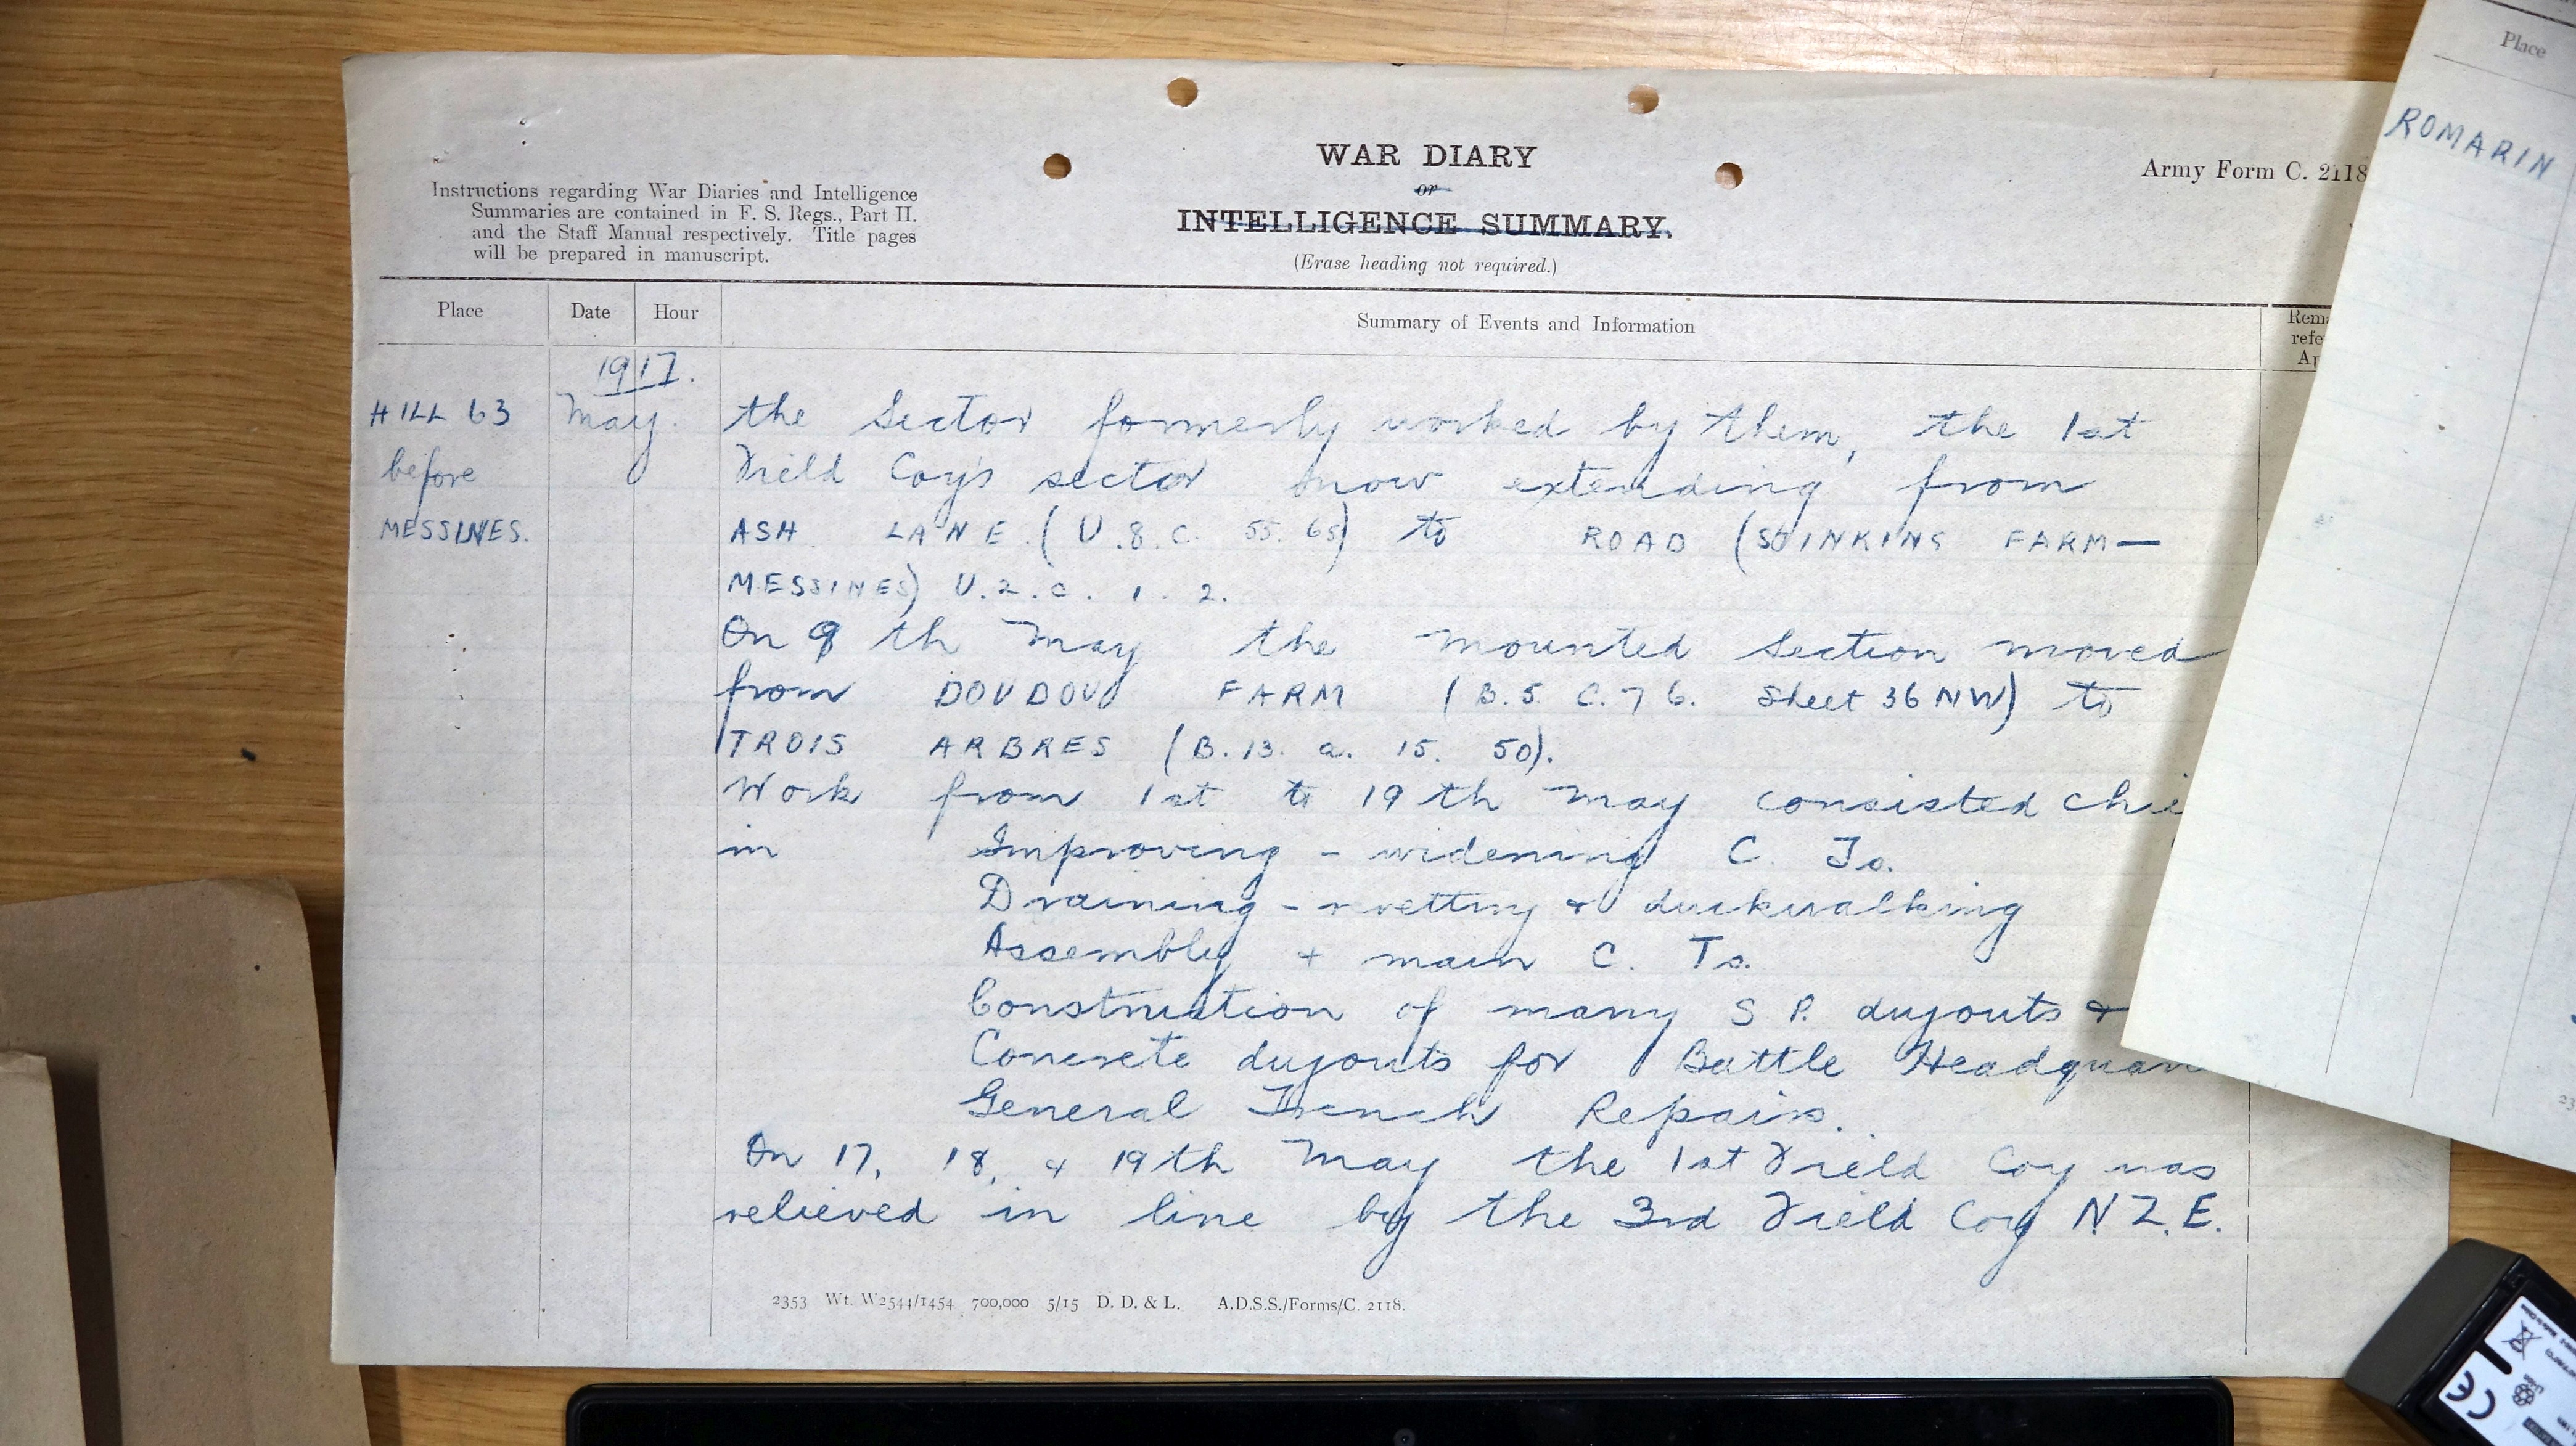 WAR DIARY
or
INTELLIGENCE SUMMARY.
(Erase heading not required.)
Army Form C. 2118
Instructions regarding War Diaries and Intelligence
Summaries are contained in F. S. Regs., Part II.
and the Staff Manual respectively. Title pages
will be prepared in manuscript.
Place Date Hour Summary of Events and Information
Rema
refe
Ap
1917.
HILL 63
before
MESSINES.
May.
the Sector formerly worked by them, the 1st
Field Coy's sector now extending from
ASH LANE (U.8.C. 55. 65) to ROAD (STINKING FARM—
MESSINES) U.2.c. 1. 2.
On 9th May the Mounted Section moved
from DOUDOU FARM (B.5. C.7 6. Sheet 36 NW) to
TROIS ARBRES (B.13. a. 15. 50).
Work from 1st to 19th May consisted chi
in Improving - widening C. Ts.
Draining - revetting & duckwalking
Assembly + main C. Ts.
Construction of many S P. dugouts &
Concrete dugouts for Battle Headquar
General Trench Repairs.
On 17, 18, & 19th May the 1st Field Coy was
relieved in line by the 3rd Field Coy N Z. E.
2353 Wt. W2544/1454 700,000 5/15 D. D. & L. A.D.S.S./Forms/C. 2118.
Place
ROMARIN
23
CE